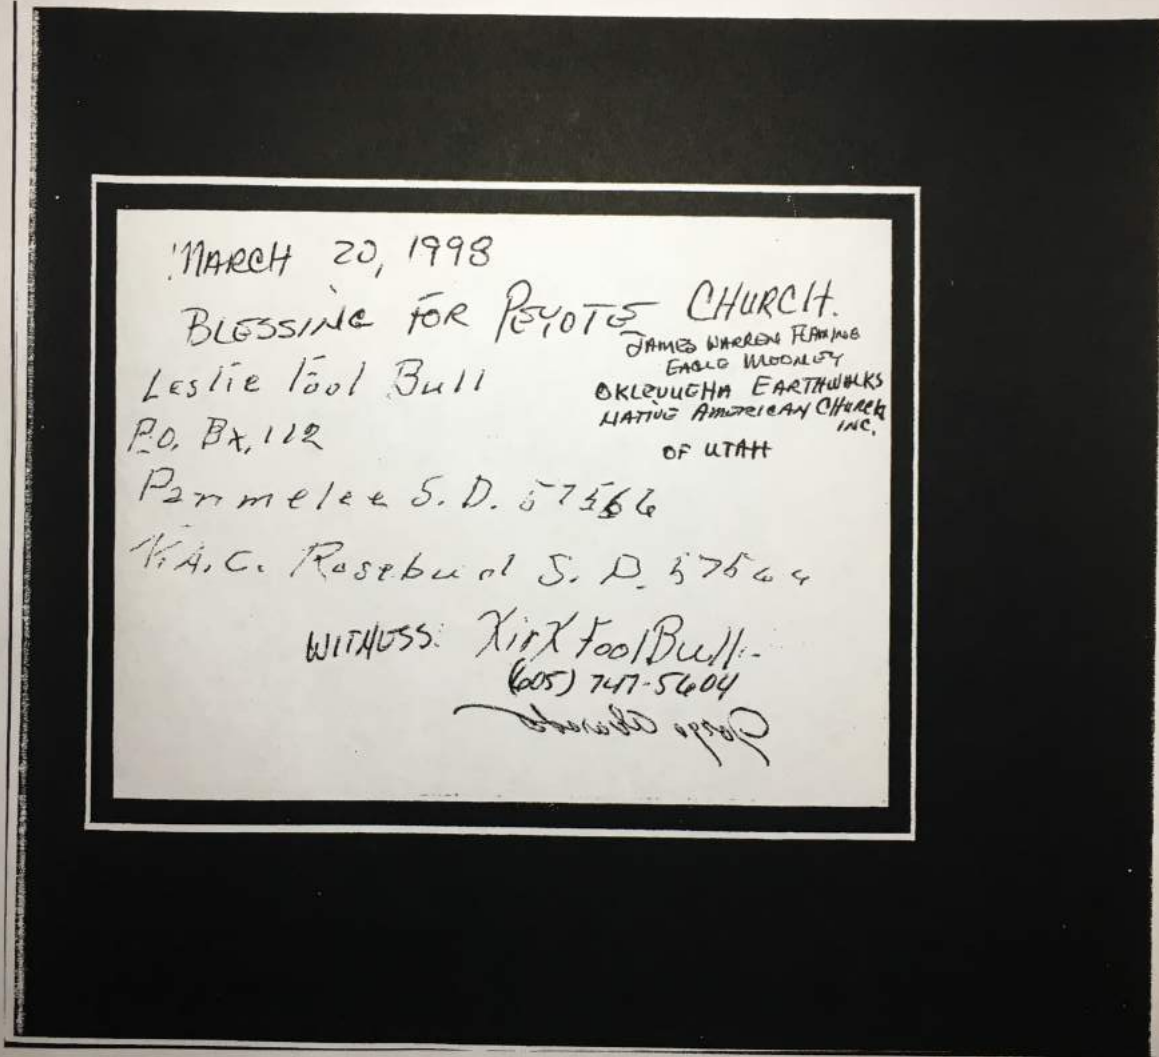 MARCH 20, 1998
BLESSING FOR PEYOTE CHURCH.
JAMES WARREN FLAMING
EAGLE MOONEY
OKLEVUEHA EARTHWALKS
NATIVE AMERICAN CHURCH
INC.
OF UTAH
Leslie Fool Bull
P.O. Bx, 112
Parmelee S.D. 57566
N.A.C. Rosebud S.D. 57566
WITNESS: Kirk Fool Bull
(605) 747-5604